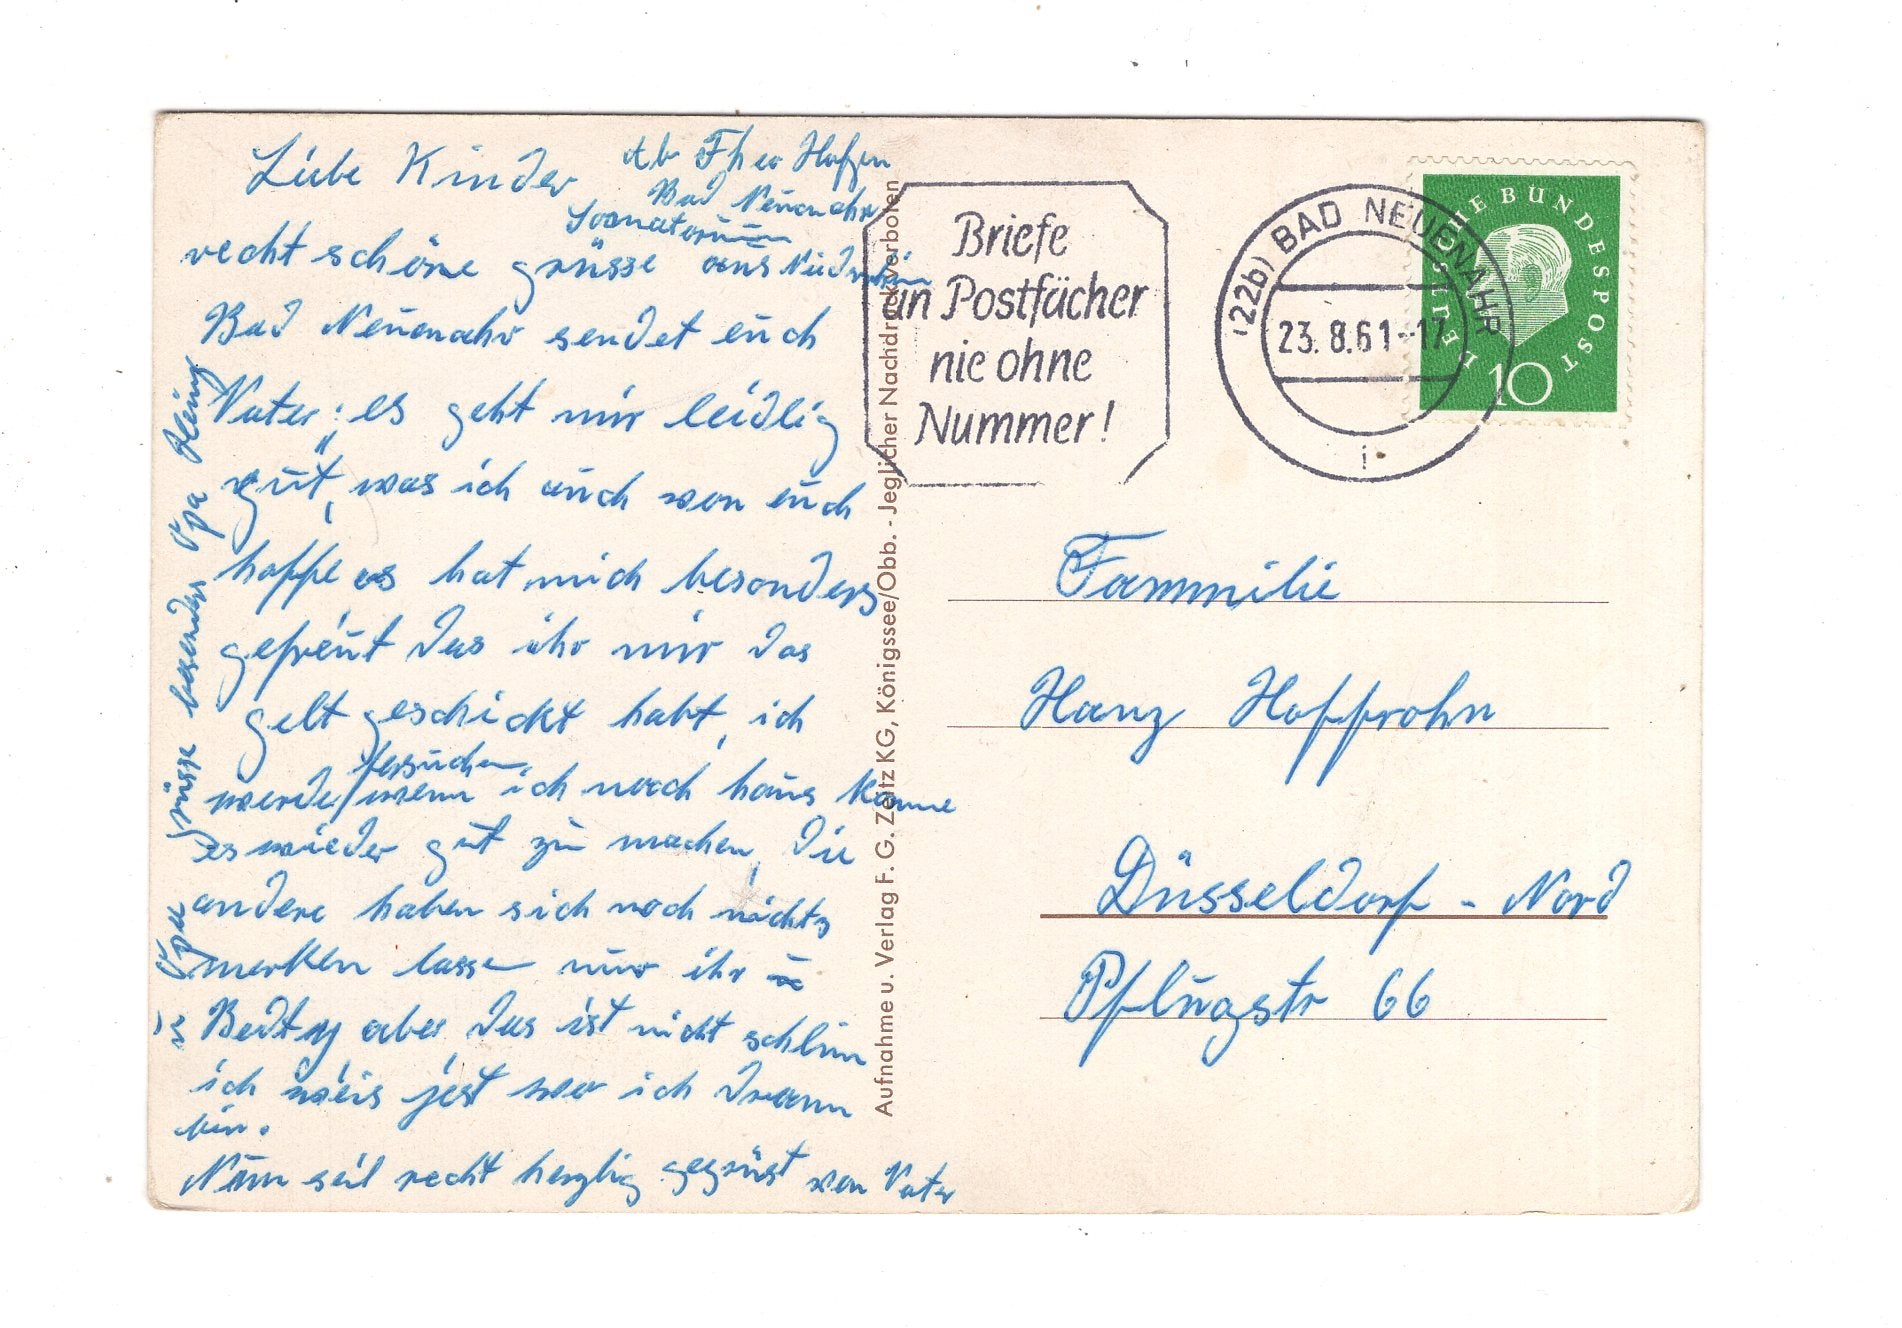 Liebe Kinder
Ab. Theo Hofen
Bad Neuenahr
Soanatorium
recht schöne grüsse aus Niederrhein
Bad Neuenahr sendet euch
Vater; es geht mir leidlig
gut, was ich auch von euch
hoffe es hat mich besonders
gefreut das ihr mir das
gelt geschickt habt, ich
versuchen
werde wenn ich nach haus komme
es wieder gut zu machen, die
andere haben sich noch nichts
merken lasse nur ihr u
aber das ist nicht schlim
ich weis jest wer ich drann
bin.
Nun seit recht herzlig gegrüst von Vater
Opa grüsse besonders Opa
Briefe
an Postfächer
nie ohne
Nummer!
(22b) BAD NEUENAHR
23.8.61-17
i
DEUTSCHE BUNDESPOST
10
Fammilie
Hanz Hoffrohn
Düsseldorf - Nord
Pflugstr 66
Aufnahme u. Verlag F. G. Zeitz KG, Königssee/Obb. - Jeglicher Nachdruck verboten